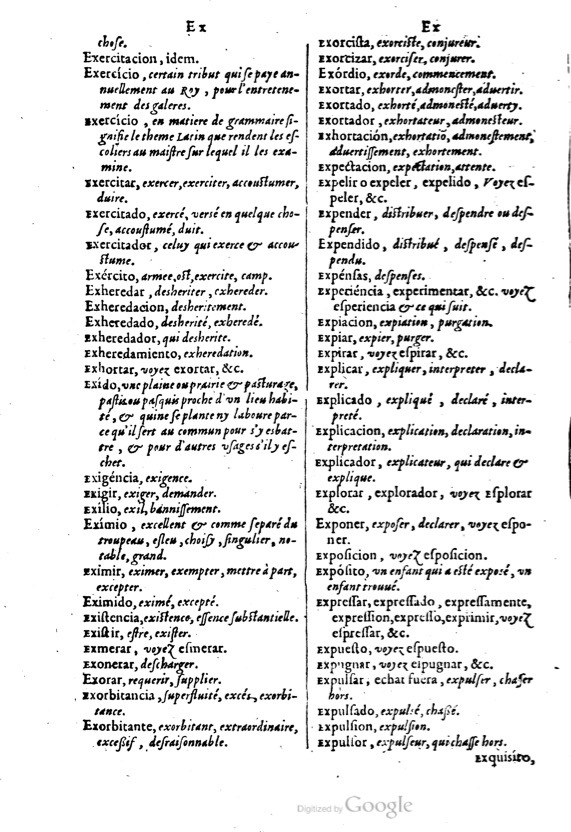 Ex
choſe.
Exercitacion, idem.
Exercício, certain tribut qui ſe paye an-
nuellement au Roy, pour l'entretene-
ment des galeres.
Exercício, en matiere de grammaire ſi-
gnifie le theme Latin que rendent les eſ-
coliers au maiſtre ſur lequel il les exa-
mine.
Exercitar, exercer, exerciter, accouſtumer,
duire.
Exercitado, exercé, versé en quelque cho-
ſe, accouſtumé, duit.
Exercitador, celuy qui exerce & accou-
ſtume.
Exército, armee, oſt, exercite, camp.
Exheredar, desheriter, exhereder.
Exheredacion, desheritement.
Exheredado, desherité, exheredé.
Exheredador, qui desherite.
Exheredamiento, exheredation.
Exhortar, voyez exortar, &c.
Exído, vne plaine ou prairie & paſturage,
paſtis ou paſquis proche d'vn lieu habi-
té, & qui ne ſe plante ny laboure par-
ce qu'il ſert au commun pour s'y esbat-
tre, & pour d'autres vſages s'il y eſ-
chet.
Exigéncia, exigence.
Exigir, exiger, demander.
Exílio, exil, banniſſement.
Exímio, excellent & comme ſeparé du
troupeau, eſleu, choiſy, ſingulier, no-
table, grand.
Eximír, eximer, exempter, mettre à part,
excepter.
Eximido, eximé, excepté.
Existencia, existence, eſſence ſubſtantielle.
Existir, eſtre, exiſter.
Exmerar, voyez eſmerar.
Exonerar, deſcharger.
Exorar, requerir, ſupplier.
Exorbitancia, ſuperfluité, excés, exorbi-
tance.
Exorbitante, exorbitant, extraordinaire,
exceſſif, deſraiſonnable.
Ex
Exorcista, exorciſte, conjureur.
Exorcizar, exorciſer, conjurer.
Exórdio, exorde, commencement.
Exortar, exhorter, admoneſter, aduertir.
Exortado, exhorté, admoneſté, aduerty.
Exortador, exhortateur, admoneſteur.
Exhortación, exhortatiō, admoneſtement,
aduertiſſement, exhortement.
Expectacion, expectation, attente.
Expelir o expeler, expelido, Voyez eſ-
peler, &c.
Expender, diſtribuer, deſpendre ou deſ-
penſer.
Expendido, diſtribué, deſpenſé, deſ-
pendu.
Expénſas, deſpenſes.
Experiéncia, experimentar, &c. voyez
eſperiencia & ce qui ſuit.
Expiacion, expiation, purgation.
Expiar, expier, purger.
Expirar, voyez eſpirar, &c.
Explicar, expliquer, interpreter, decla-
rer.
Explicado, expliqué, declaré, inter-
preté.
Explicacion, explication, declaration, in-
terpretation.
Explicador, explicateur, qui declare &
explique.
Explorar, explorador, voyez Eſplorar
&c.
Exponer, expoſer, declarer, voyez eſpo-
ner.
Expoſicion, voyez eſpoſicion.
Expóſito, vn enfant qui a eſté expoſé, vn
enfant trouué.
Expreſſar, expreſſado, expreſſamente,
expreſſion, expreſſo, exprimir, voyez
eſpreſſar, &c.
Expueſto, voyez eſpueſto.
Expugnar, voyez eſpugnar, &c.
Expulſar, echar fuera, expulſer, chaſſer
hors.
Expulſado, expulſé, chaſſé.
Expulſion, expulſion.
Expulſor, expulſeur, qui chaſſe hors.
Exquiſíto,
Digitized by Google